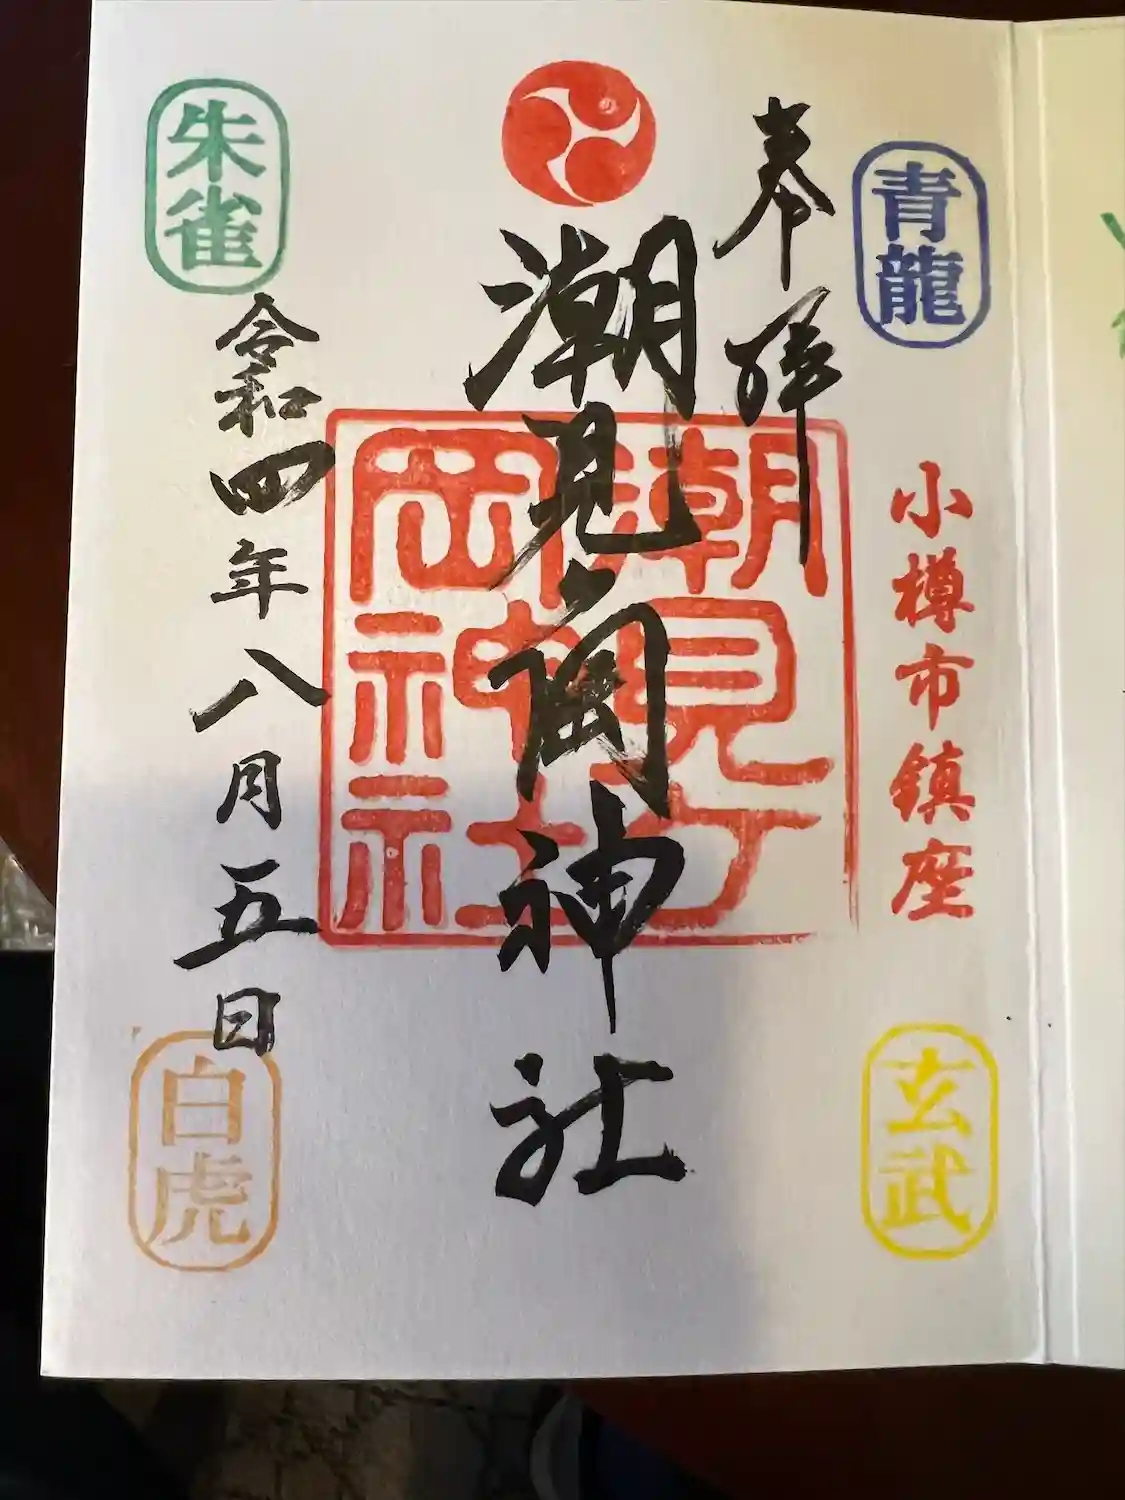 青龍
奉拝
小樽市鎮座
玄武
潮見岡神社
潮見ヶ
岡神社
朱雀
令和四年八月五日
白虎